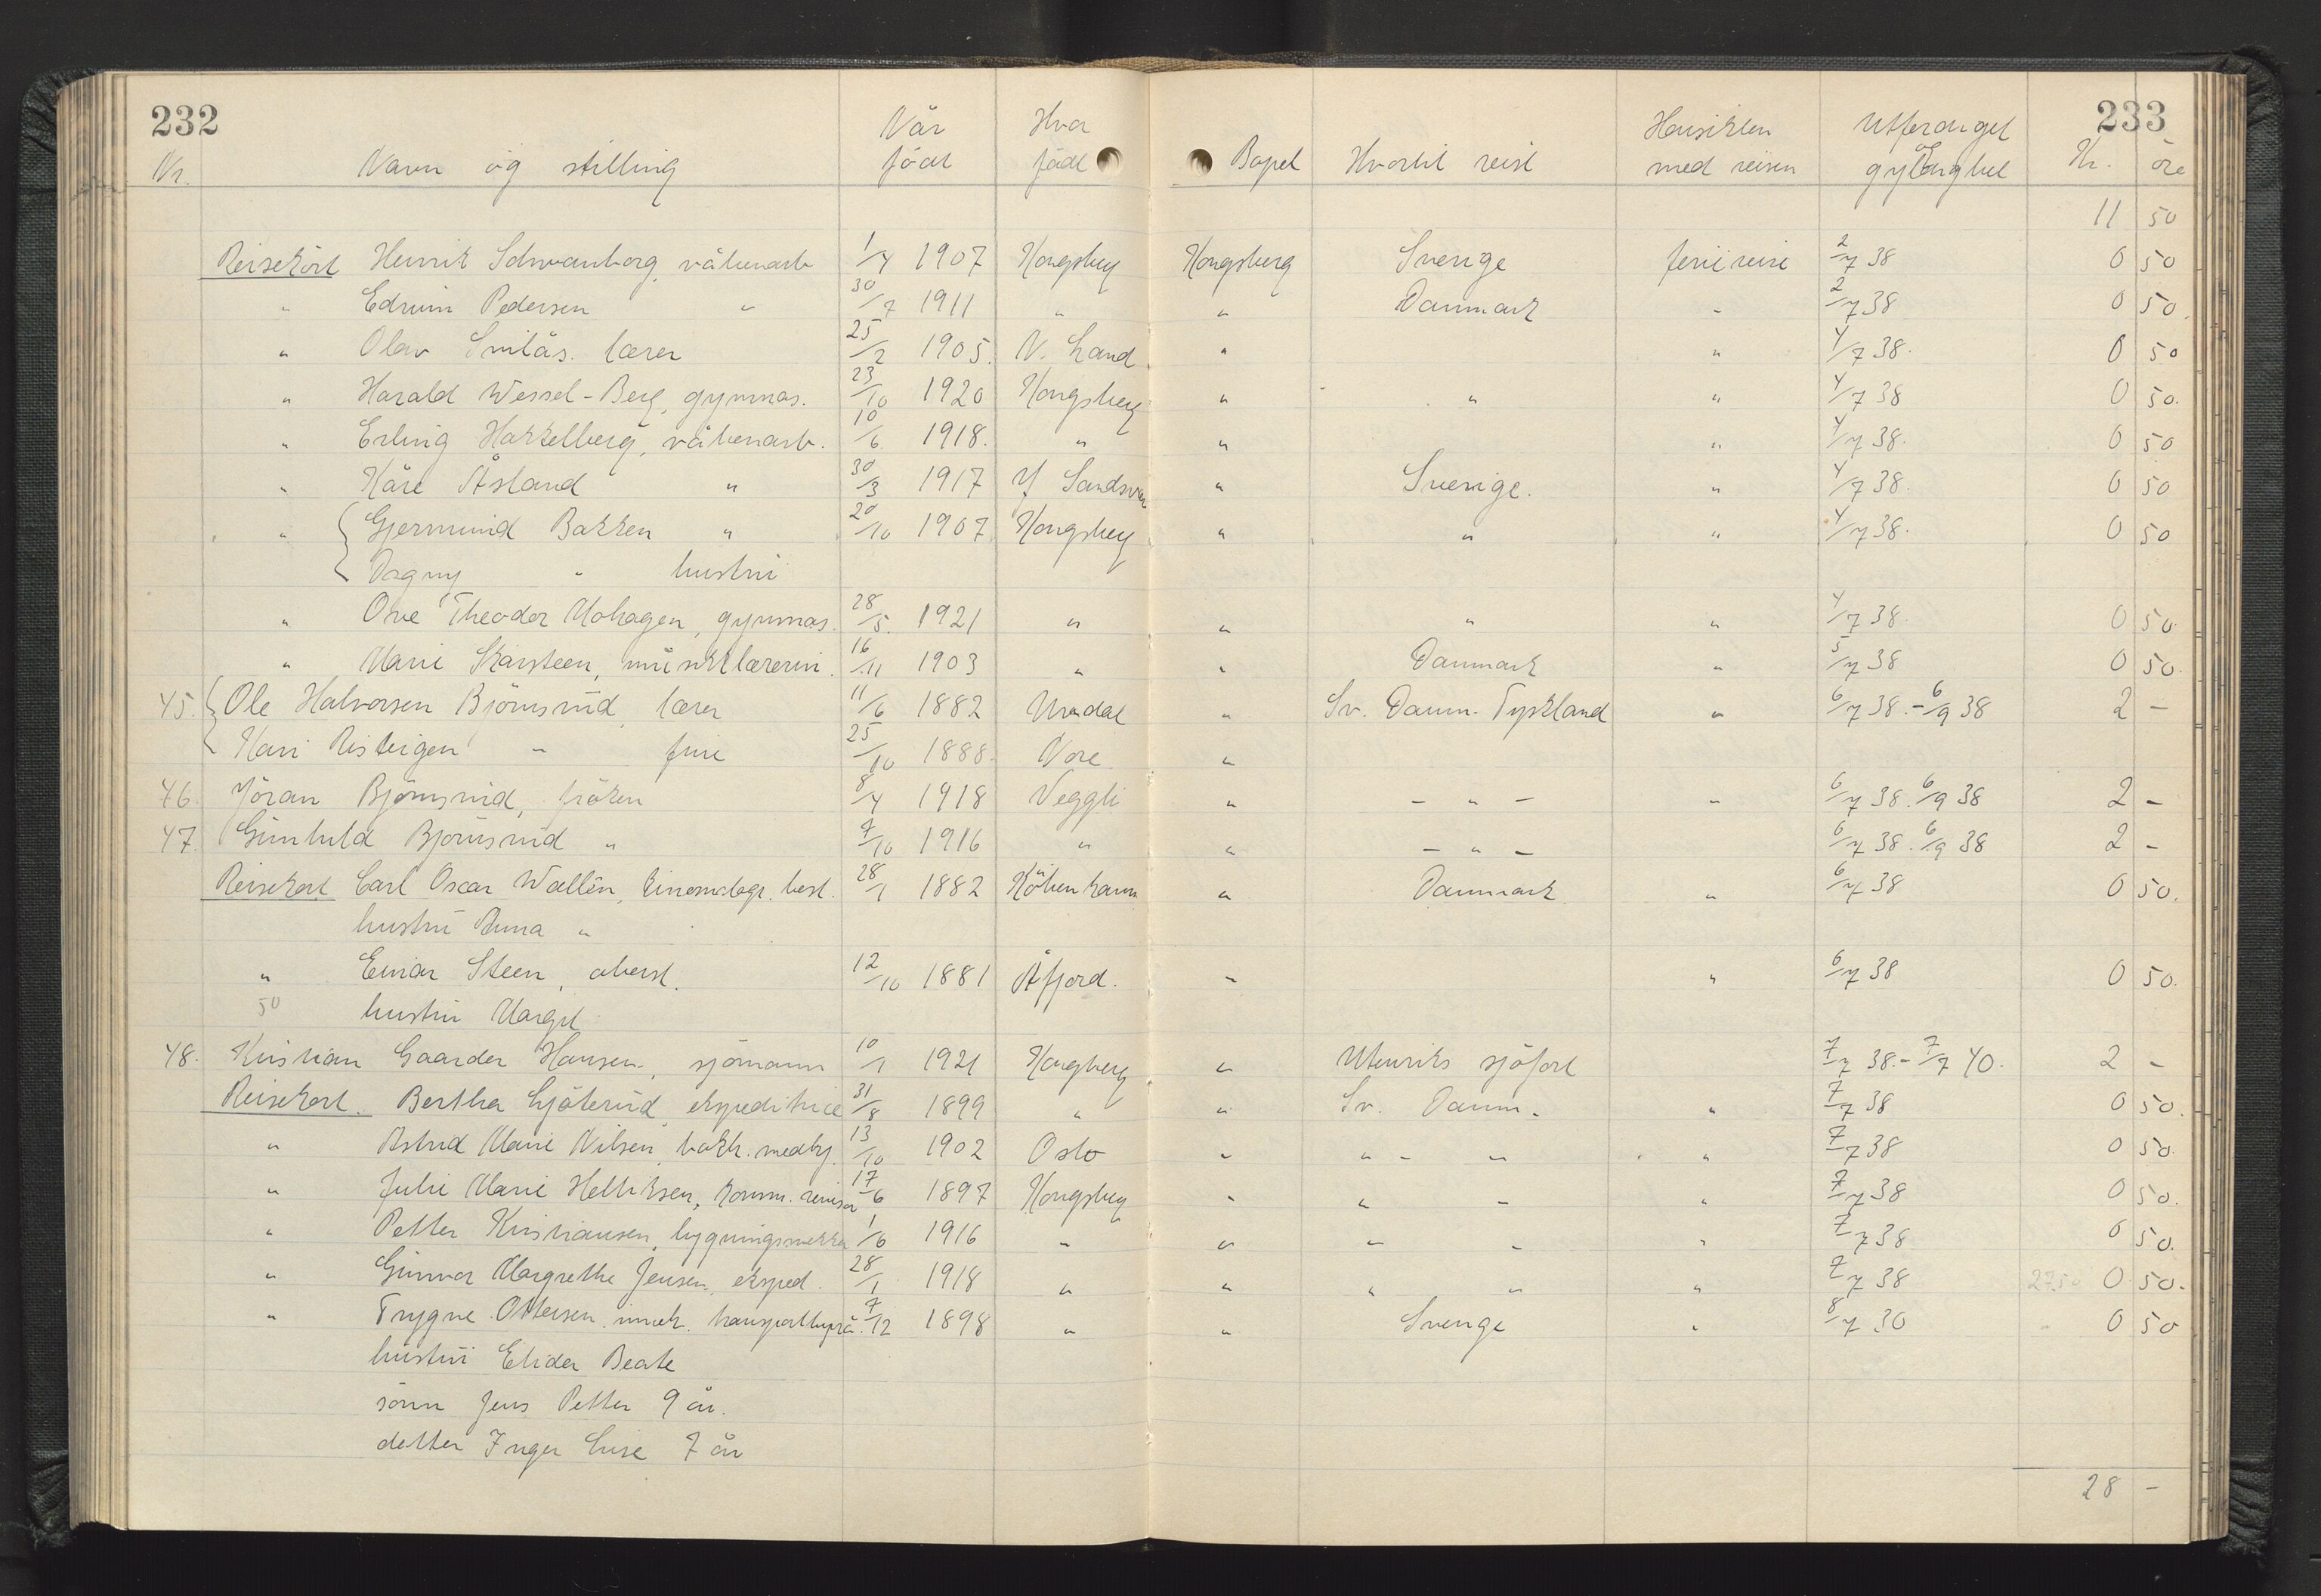 232
233
Nr. Navn og stilling Når født Hvor født Bopel Hvortil reist Hensikten med reisen Utferdiget og gyldighet Kr. öre
11 50
Reisekort Henrik Schwanborg, våbenarb 1/4 1907 Kongsberg Kongsberg Sverige feriereise 2/7 38 0 50
" Edvin Pedersen " 30/7 1911 " " Danmark " 2/7 38 0 50.
" Olav Smilås. lærer 25/2 1905. N. Land " " 4/7 38. 0 50
" Harald Wessel-Berg, gymnas. 23/10 1920 Kongsberg " " " 4/7 38 0 50.
" Erling Hakkelberg, våbenarb. 10/6 1918. " " " 4/7 38. 0 50
" Kåre Åsland " 30/3 1917 Y Sandsvær " Sverige. " 4/7 38. 0 50
" Gjermund Bakken " 20/10 1907 Kongsberg " " " 4/7 38. 0 50
Dagny " hustru
" Ove Theodor Mohagen, gymnas. 28/5. 1921 " " " " 4/7 38. 0 50.
" Marie Skarsteen, musikklærerin. 16/11 1903 " " Danmark " 5/7 38 0 50.
45. Ole Halvorsen Björnsrud, lærer 11/6 1882 Uvdal " Sv. Danm. Tyskland " 6/7 38.-6/9 38 2 -
Kari Risteigen " frue 25/10 1888. Nore "
46. Jöran Björnsrud, fröken 8/4 1918 Veggli " - " - " 6/7 38. 6/9 38 2 -
47. Gunhild Björnsrud " 7/10 1916 " " - " - 6/7 38. 6/9 38 2 -
Reisekort Carl Oscar Wallin, kinematogr. best. 28/1 1882 Köbenhavn " Danmark " 6/7 38 0 50.
hustru Anna "
" Einar Steen, oberst. 12/10 1881 Åfjord. " " 6/7 38 0 50.
50 hustru Margit
48. Kristian Gaarder Hansen, sjömann 10/1 1921 Kongsberg " Utenriks sjöfart 7/7 38.-7/7 40. 2 -
Reisekort. Bertha Ljöterud, ekspeditrice 31/8 1899 " " Sv. Danm. " 7/7 38 0 50.
" Astrid Marie Nilsen, bokh. medhj. 13/10 1902 Oslo " " - " " 7/7 38 0 50.
" Julie Marie Helliksen, komm. revisor 17/6 1897 Kongsberg " " " " 7/7 38 0 50.
" Petter Kristiansen, bygningssnekker 1/6 1916 " " " " " 7/7 38 0 50.
" Gunvor Margrethe Jensen, eksped. 28/1 1918 " " " " " 7/7 38 27.50 0 50.
" Trygve Ottersen, inneh. transportbyrå. 7/12 1898 " " Sverige " 8/7 30 0 50
hustru Elida Beate
sönn Jens Petter 9 år.
datter Inger Lise 7 år
28 -